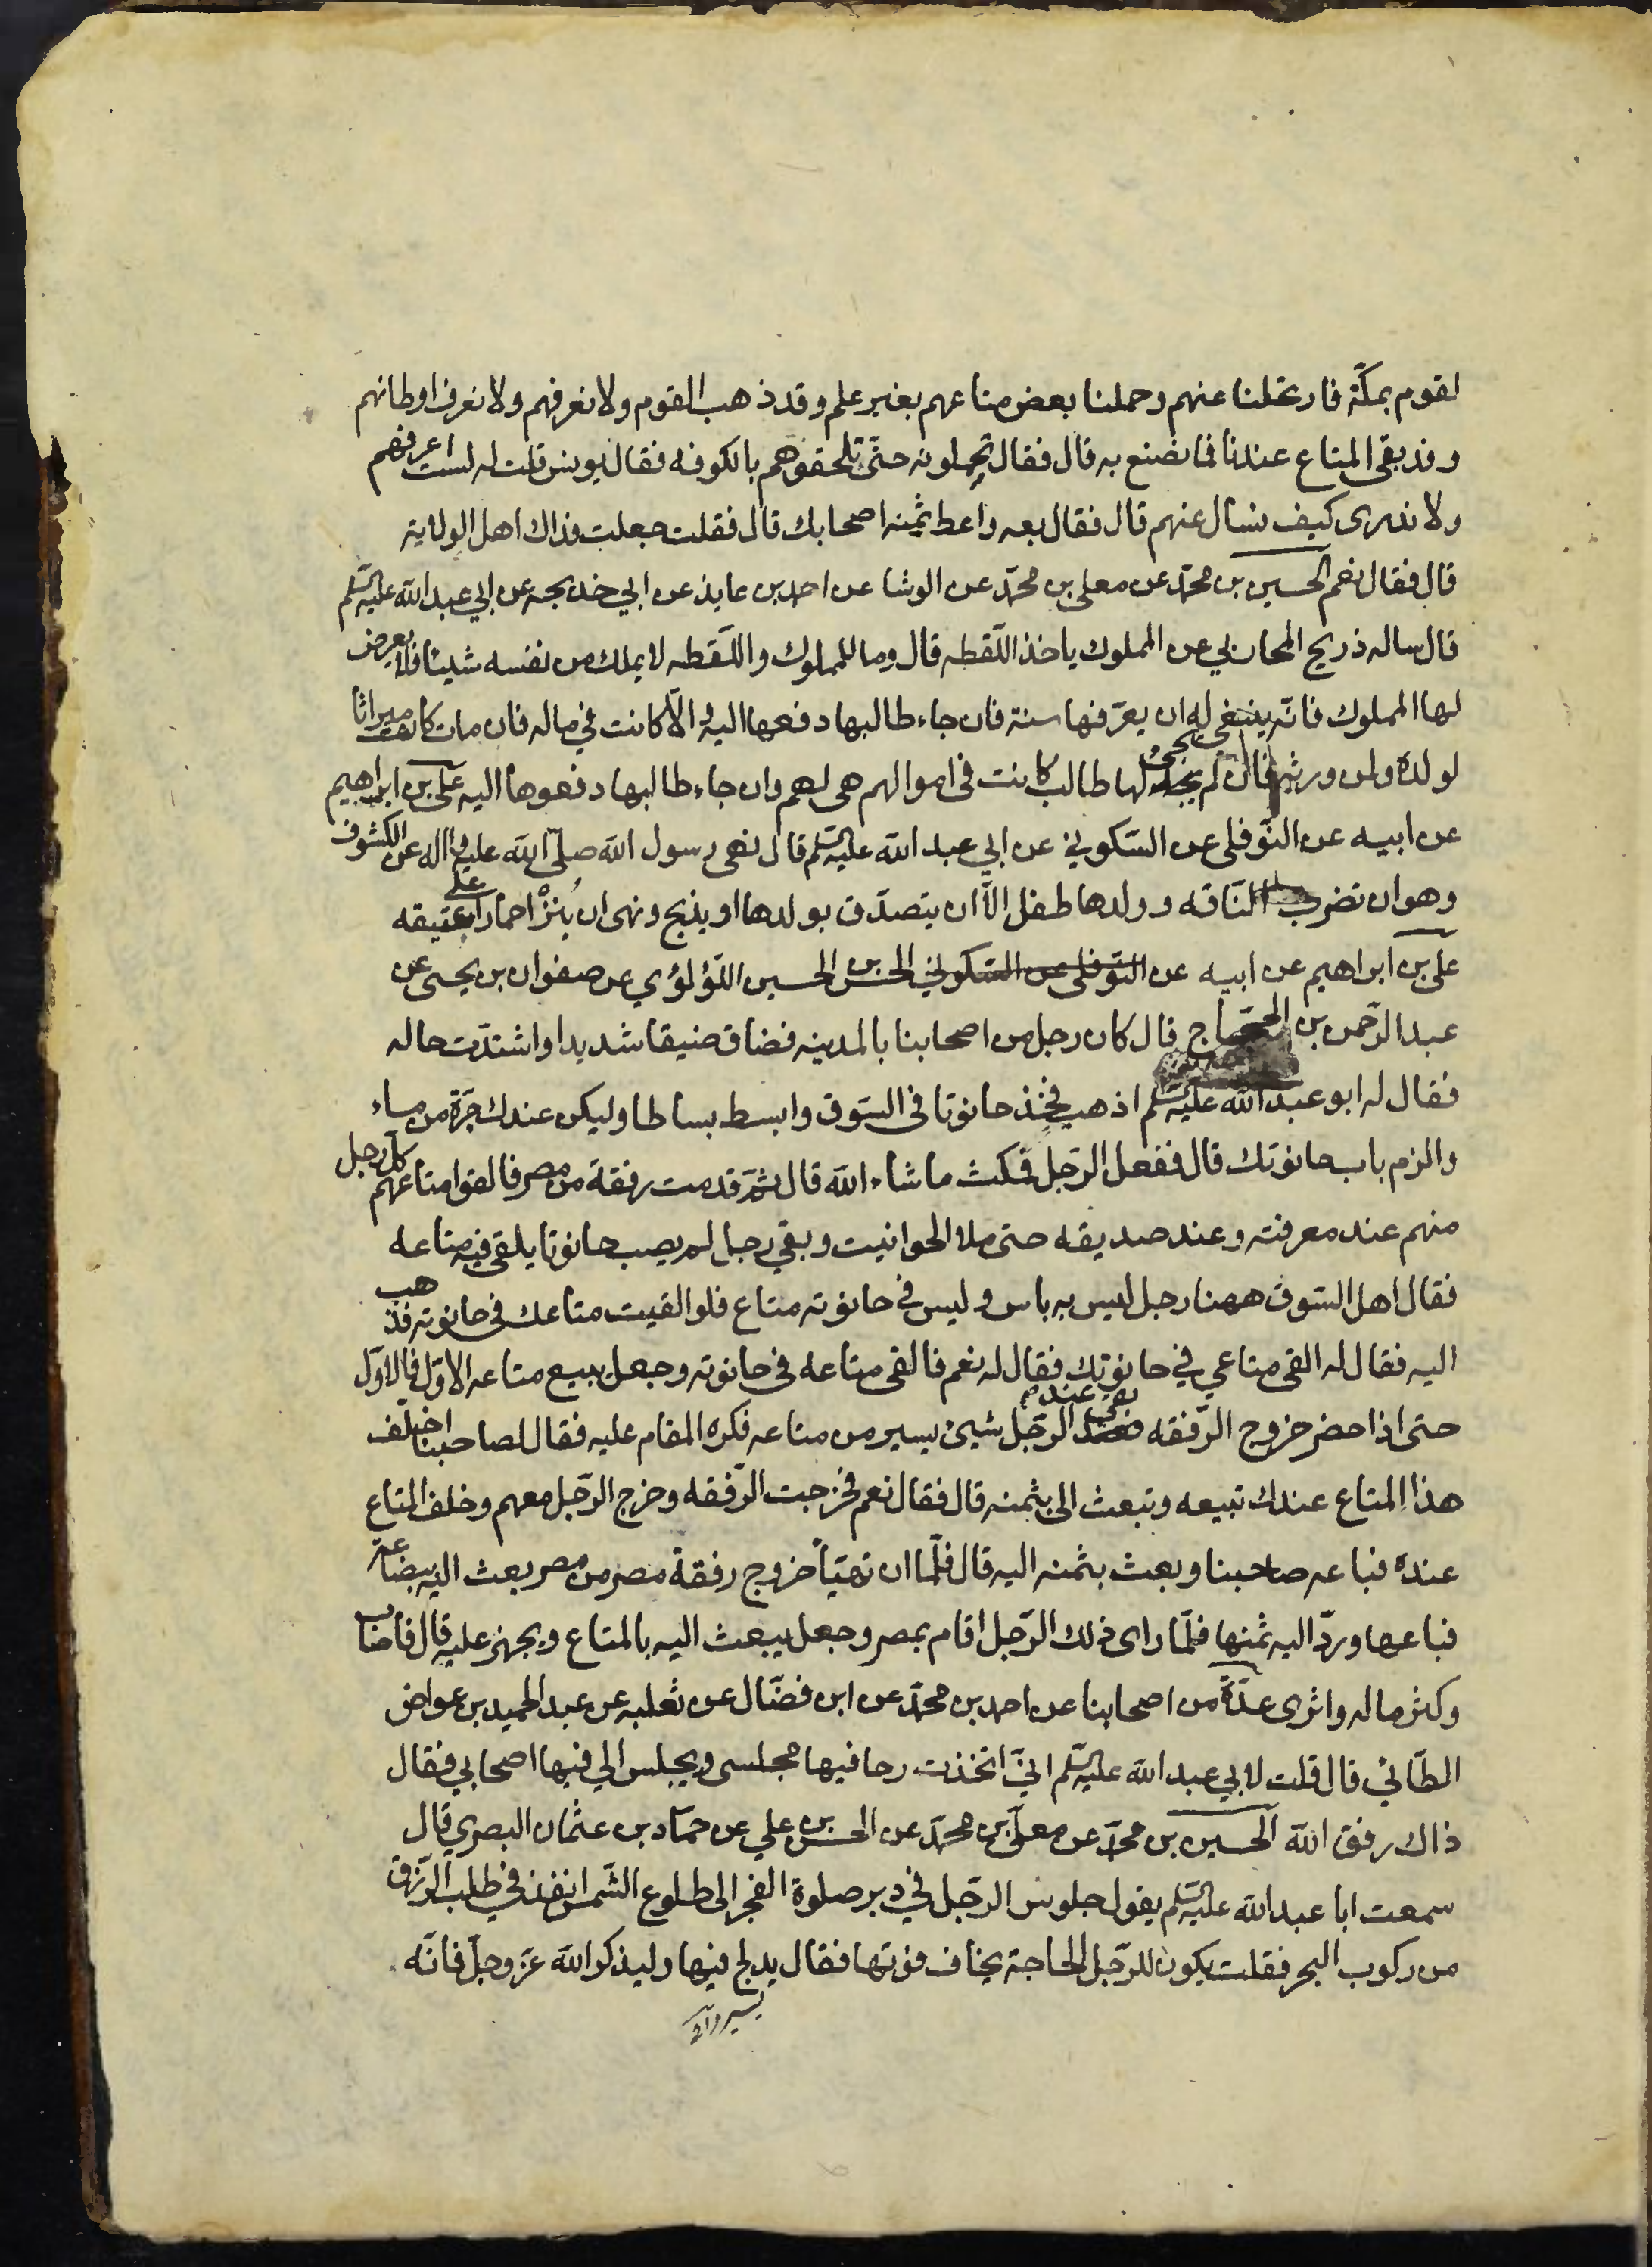 لقوم بمكّة فارتحلنا عنهم وحملنا بعض متاعهم بغير علم وقد ذهب القوم ولا نعرفهم ولا نعرف اوطانهم
وقد بقى المتاع عندنا فما نصنع به قال فقال تحملونه حتّى تلحقوهم بالكوفه فقال يونس قلت له لست اعرفهم
ولا ندرى كيف نسال عنهم قال فقال بعه واعط ثمنه اصحابك قال فقلت جعلت فداك اهل الولاية
قال فقال نعم الحسين بن محمّد عن معلى بن محمّد عن الوشا عن احمد بن عايذ عن ابي خديجه عن ابي عبد الله عليه السّلم
قال ساله ذريح المحاربي عن المملوك ياخذ اللّقطه قال وما للمملوك واللّقطه لا يملك من نفسه شيئا فلا يعرض
لها المملوك فانّه ينبغى له ان يعرّفها سنة فان جاء طالبها دفعها اليه والّا كانت في ماله فان مات كانت ميراثا
لولده ولمن ورثه فان لم يجئ لها طالب كانت فى اموالهم هى لهم وان جاء طالبها دفعوها اليه على بن ابراهيم
عن ابيه عن النّوفلى عن السّكوني عن ابي عبد الله عليه السّلم قال نهى رسول الله صلّى الله عليه واله عن الكشوف
وهو ان تضرب النّاقه وولدها طفل الّا ان يتصدّق بولدها او يذبح ونهى ان يُنزْا حمار على عتيقه
على بن ابراهيم عن ابيه عن النّوفلى عن السّكوني الحسن بن الحسين اللّؤلؤي عن صفوان بن يحيى عن
عبد الرّحمن بن الحجّاج قال كان رجل من اصحابنا بالمدينه فضاق ضيقا شديدا واشتدّت حاله
فقال له ابو عبد الله عليه السّلم اذهب فخذ حانوتا فى السّوق وابسط بساطا وليكن عندك جرّة من ماء
والزم باب حانوتك قال ففعل الرّجل فمكث ما شاء الله قال ثمّ قدمت رفقة من مصر فالقوا متاعهم كلّ رجل
منهم عند معرفته وعند صديقه حتى ملا الحوانيت وبقي رجل لم يصب حانوتا يلقى فيه متاعه
فقال اهل السّوق ههنا رجل ليس به باس وليس في حانوته متاع فلو القيت متاعك فى حانوته فذهب
اليه فقال له القى متاعي في حانوتك فقال له نعم فالقى متاعه فى حانوته وجعل يبيع متاعه الاوّل فالاوّل
حتى اذا حضر خروج الرّفقه بقي عند الرّجل شيئ يسير من متاعه فكره المقام عليه فقال لصاحبنا اخلّف
هذا المتاع عندك تبيعه وتبعث الى بثمنه قال فقال نعم فخرجت الرّفقه وخرج الرّجل معهم وخلف المتاع
عنده فباعه صاحبنا وبعث بثمنه اليه قال فلمّا ان تهيّأ خروج رفقة مصر من مصر بعث اليه ببضاعة
فباعها وردّ اليه ثمنها فلمّا راى ذلك الرّجل اقام بمصر وجعل يبعث اليه بالمتاع ويجهز عليه قال فاصاب
وكثر ماله واثرى عدّة من اصحابنا عن احمد بن محمّد عن ابن فضّال عن ثعلبه عن عبد الحميد بن عواض
الطّائي قال قلت لابي عبد الله عليه السّلم انيّ اتخذت رحا فيها مجلسى ويجلس الي فيها اصحابي فقال
ذاك رفق الله الحسين بن محمّد عن معلّى بن محمّد عن الحسن بن علي عن حمّاد بن عثمان البصري قال
سمعت ابا عبد الله عليه السّلم يقول جلوس الرّجل في دبر صلوة الفجر الى طلوع الشّمس انفذ في طلب الرّزق
من ركوب البحر فقلت يكون للرّجل الحاجة يخاف فوتها فقال يدلج فيها وليذكر الله عزّ وجلّ فانّه